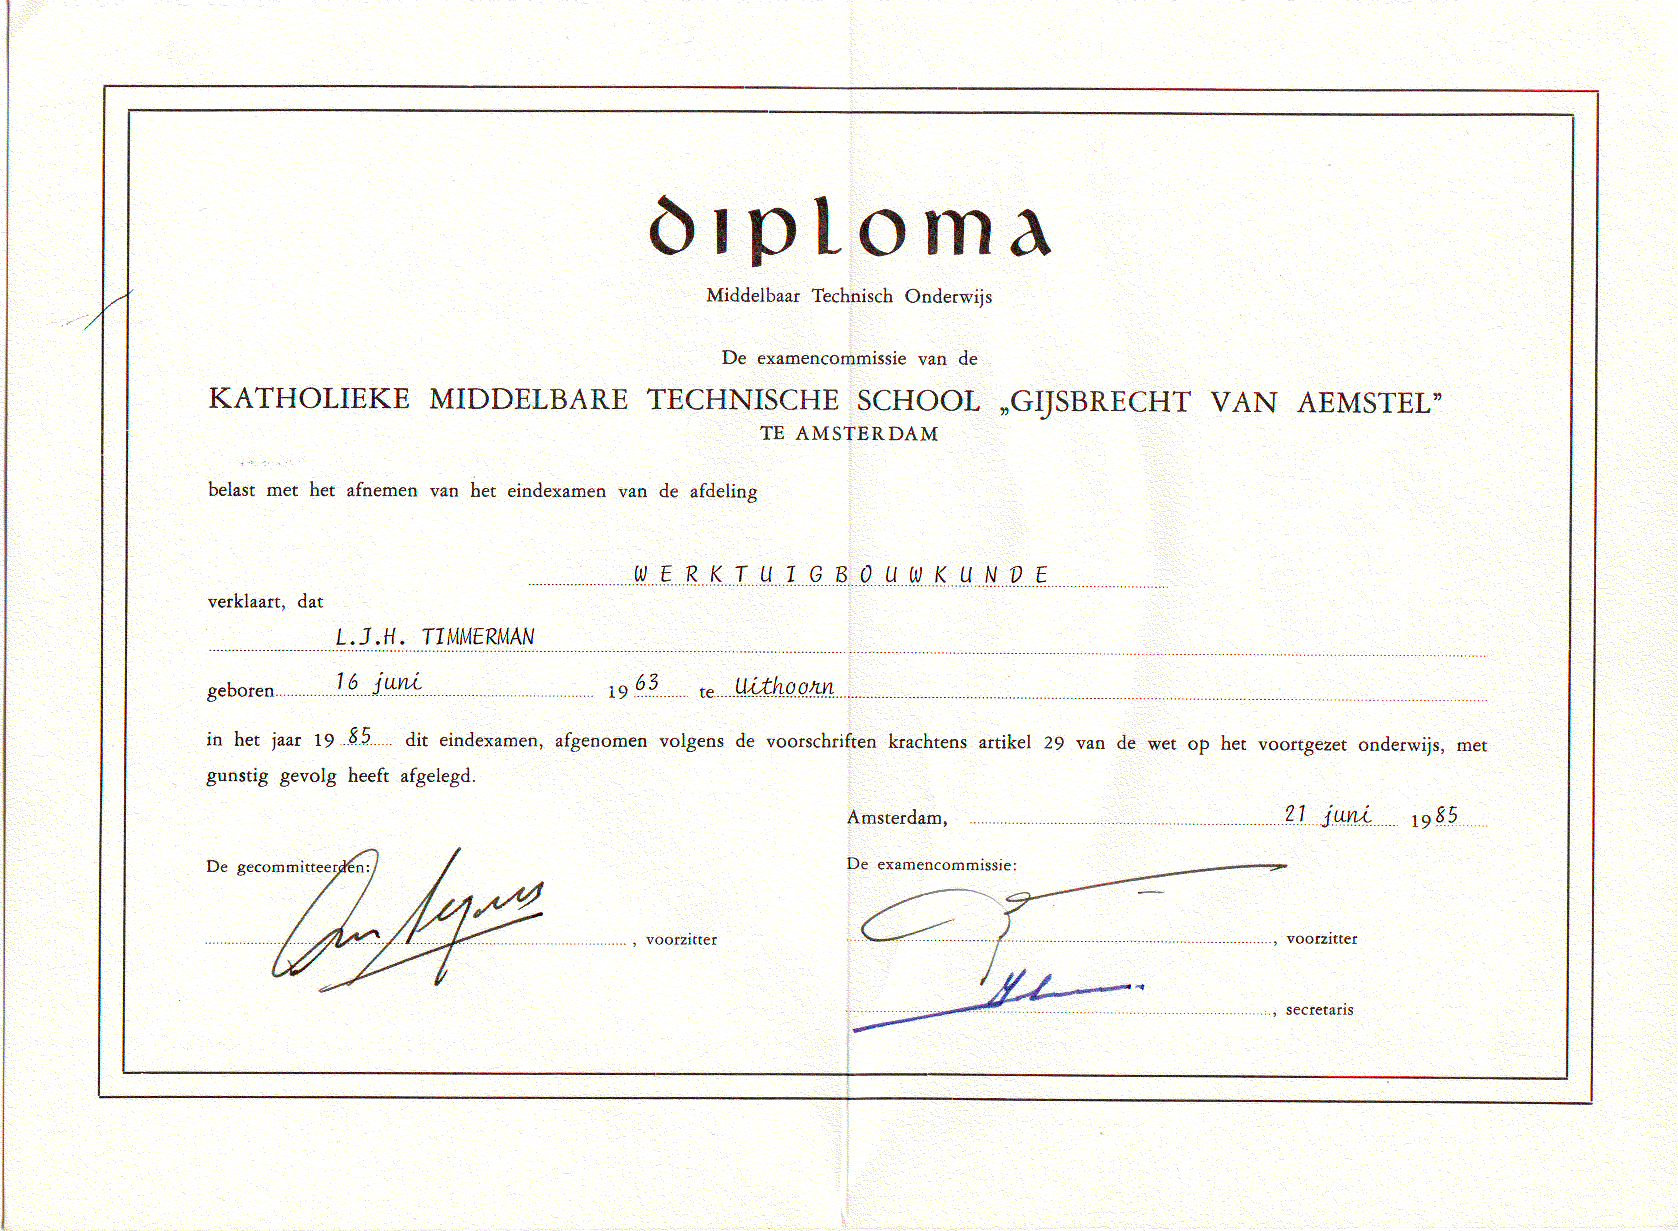 diploma
Middelbaar Technisch Onderwijs
De examencommissie van de
KATHOLIEKE MIDDELBARE TECHNISCHE SCHOOL „GIJSBRECHT VAN AEMSTEL”
TE AMSTERDAM
belast met het afnemen van het eindexamen van de afdeling
WERKTUIGBOUWKUNDE
verklaart, dat
L.J.H. TIMMERMAN
geboren 16 juni 1963 te Uithoorn
in het jaar 1985 dit eindexamen, afgenomen volgens de voorschriften krachtens artikel 29 van de wet op het voortgezet onderwijs, met
gunstig gevolg heeft afgelegd.
Amsterdam, 21 juni 1985
De gecommitteerden:
De examencommissie:
, voorzitter
, voorzitter
, secretaris